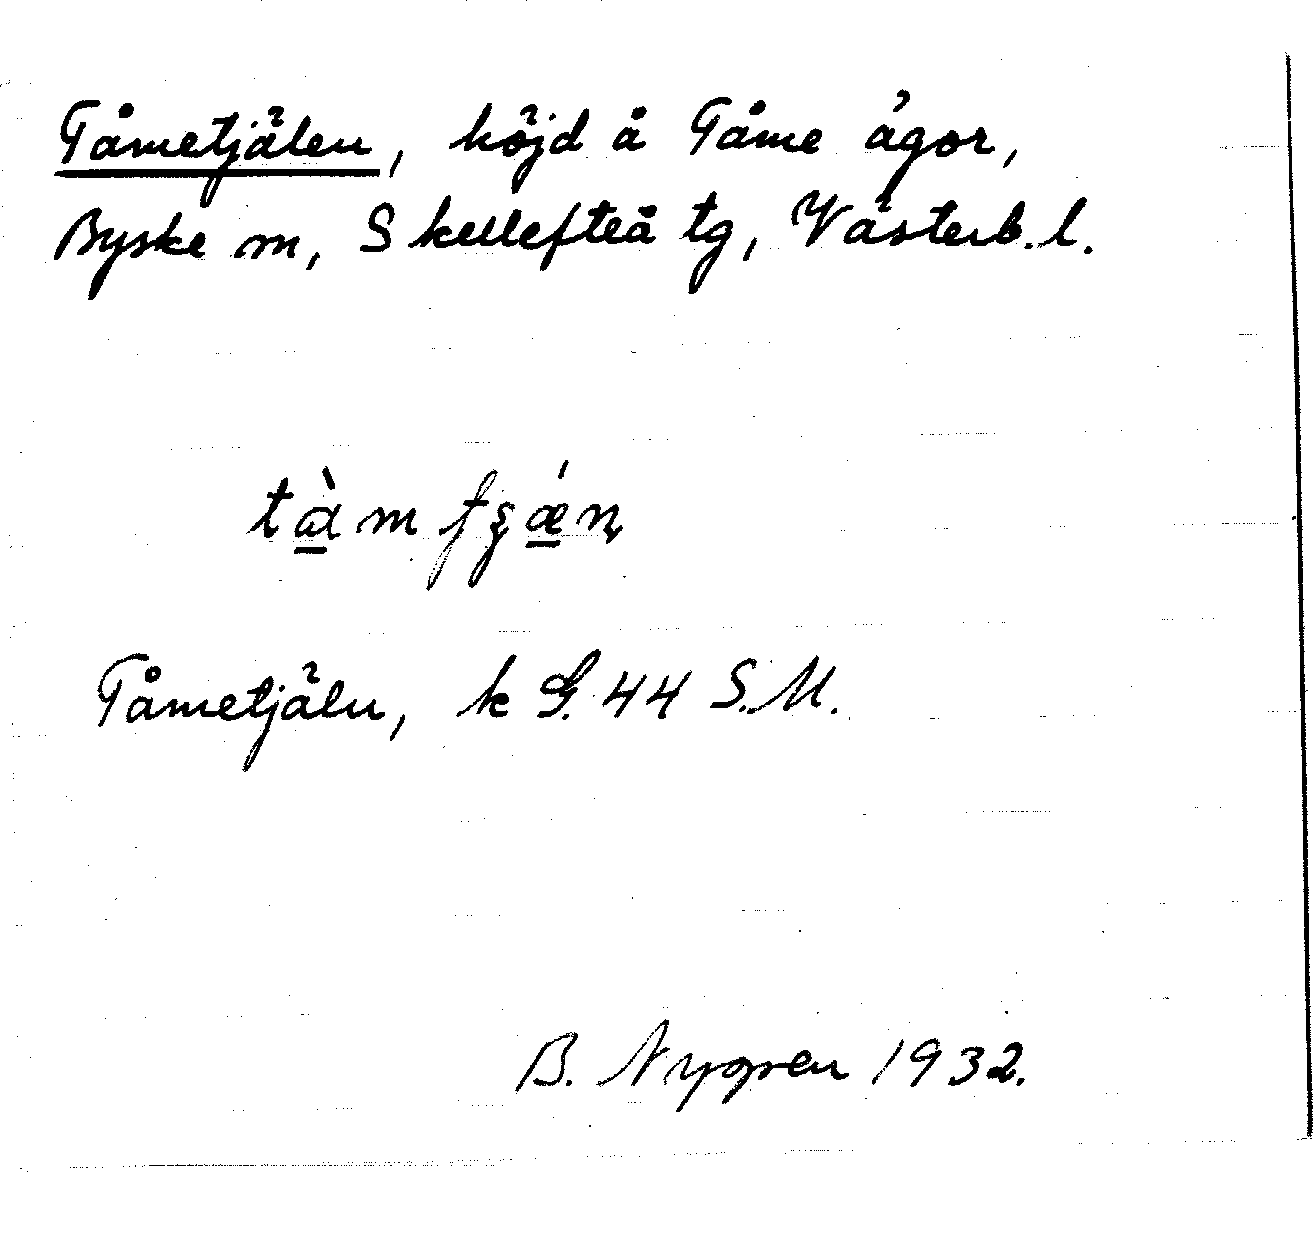 Tåmetjälen, höjd å Tåme ägor,
Byske sn, Skellefteå tg, Västerb. l.
Tåmetjäln, k G. 44 S.M.
B. Nygren 1932.